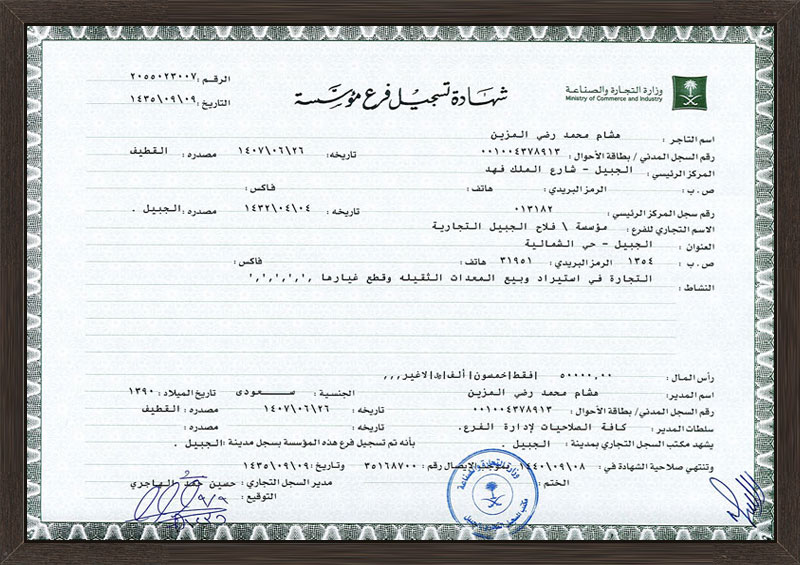 وزارة التجارة والصناعة
Ministry of Commerce and Industry
شهادة تسجيل فرع مؤسسة
الرقم: ٢٠٥٥٠٢٣٠٠٧
التاريخ: ١٤٣٥/٠٩/٠٩
اسم التاجر : هشام محمد رضي المزين
رقم السجل المدني/ بطاقة الأحوال: ٠٠١٠٠٤٣٧٨٩١٣ تاريخه: ١٤٠٧\٠٦\٢٦ مصدره: القطيف
المركز الرئيسي: الجبيل - شارع الملك فهد
ص . ب : الرمز البريدي: هاتف: فاكس:
رقم سجل المركز الرئيسي: ٠١٣١٨٢ تاريخه: ١٤٣٢/٠٤/٠٤ مصدره: الجبيل .
الاسم التجاري للفرع: مؤسسة \ فلاح الجبيل التجارية
العنوان : الجبيل - حي الشمالية
ص . ب : ١٣٥٤ الرمز البريدي: ٣١٩٥١ هاتف: فاكس:
النشاط : التجارة في استيراد وبيع المعدات الثقيله وقطع غيارها ,',',',','
رأس المال : ٥٠٠٠٠,٠٠ |فقط|خمسون|ألف| |لاغير,,,
اسم المدير: هشام محمد رضي المزين الجنسية : سعودى تاريخ الميلاد : ١٣٩٠
رقم السجل المدني/ بطاقة الأحوال: ٠٠١٠٠٤٣٧٨٩١٣ تاريخه: ١٤٠٧\٠٦\٢٦ مصدره: القطيف
سلطات المدير: كافة الصلاحيات لإدارة الفرع. تاريخه : مصدره :
يشهد مكتب السجل التجاري بمدينة : الجبيل . بأنه تم تسجيل فرع هذه المؤسسة بسجل مدينة: الجبيل .
وتنتهي صلاحية الشهادة في : ١٤٤٠/٠٩/٠٨ الإيصال رقم : ٣٥١٦٨٧٠٠ وتاريخ: ١٤٣٥\٠٩\٠٩
الختم : مدير السجل التجاري: حسين حمد الهاجري
التوقيع :